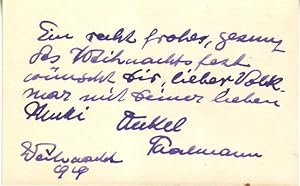 Ein recht frohes, gesun
des Weihnachtsfest
wünscht Dir, lieber Volk-
mar mit Deiner lieben
Mutti Onkel
Weihnacht